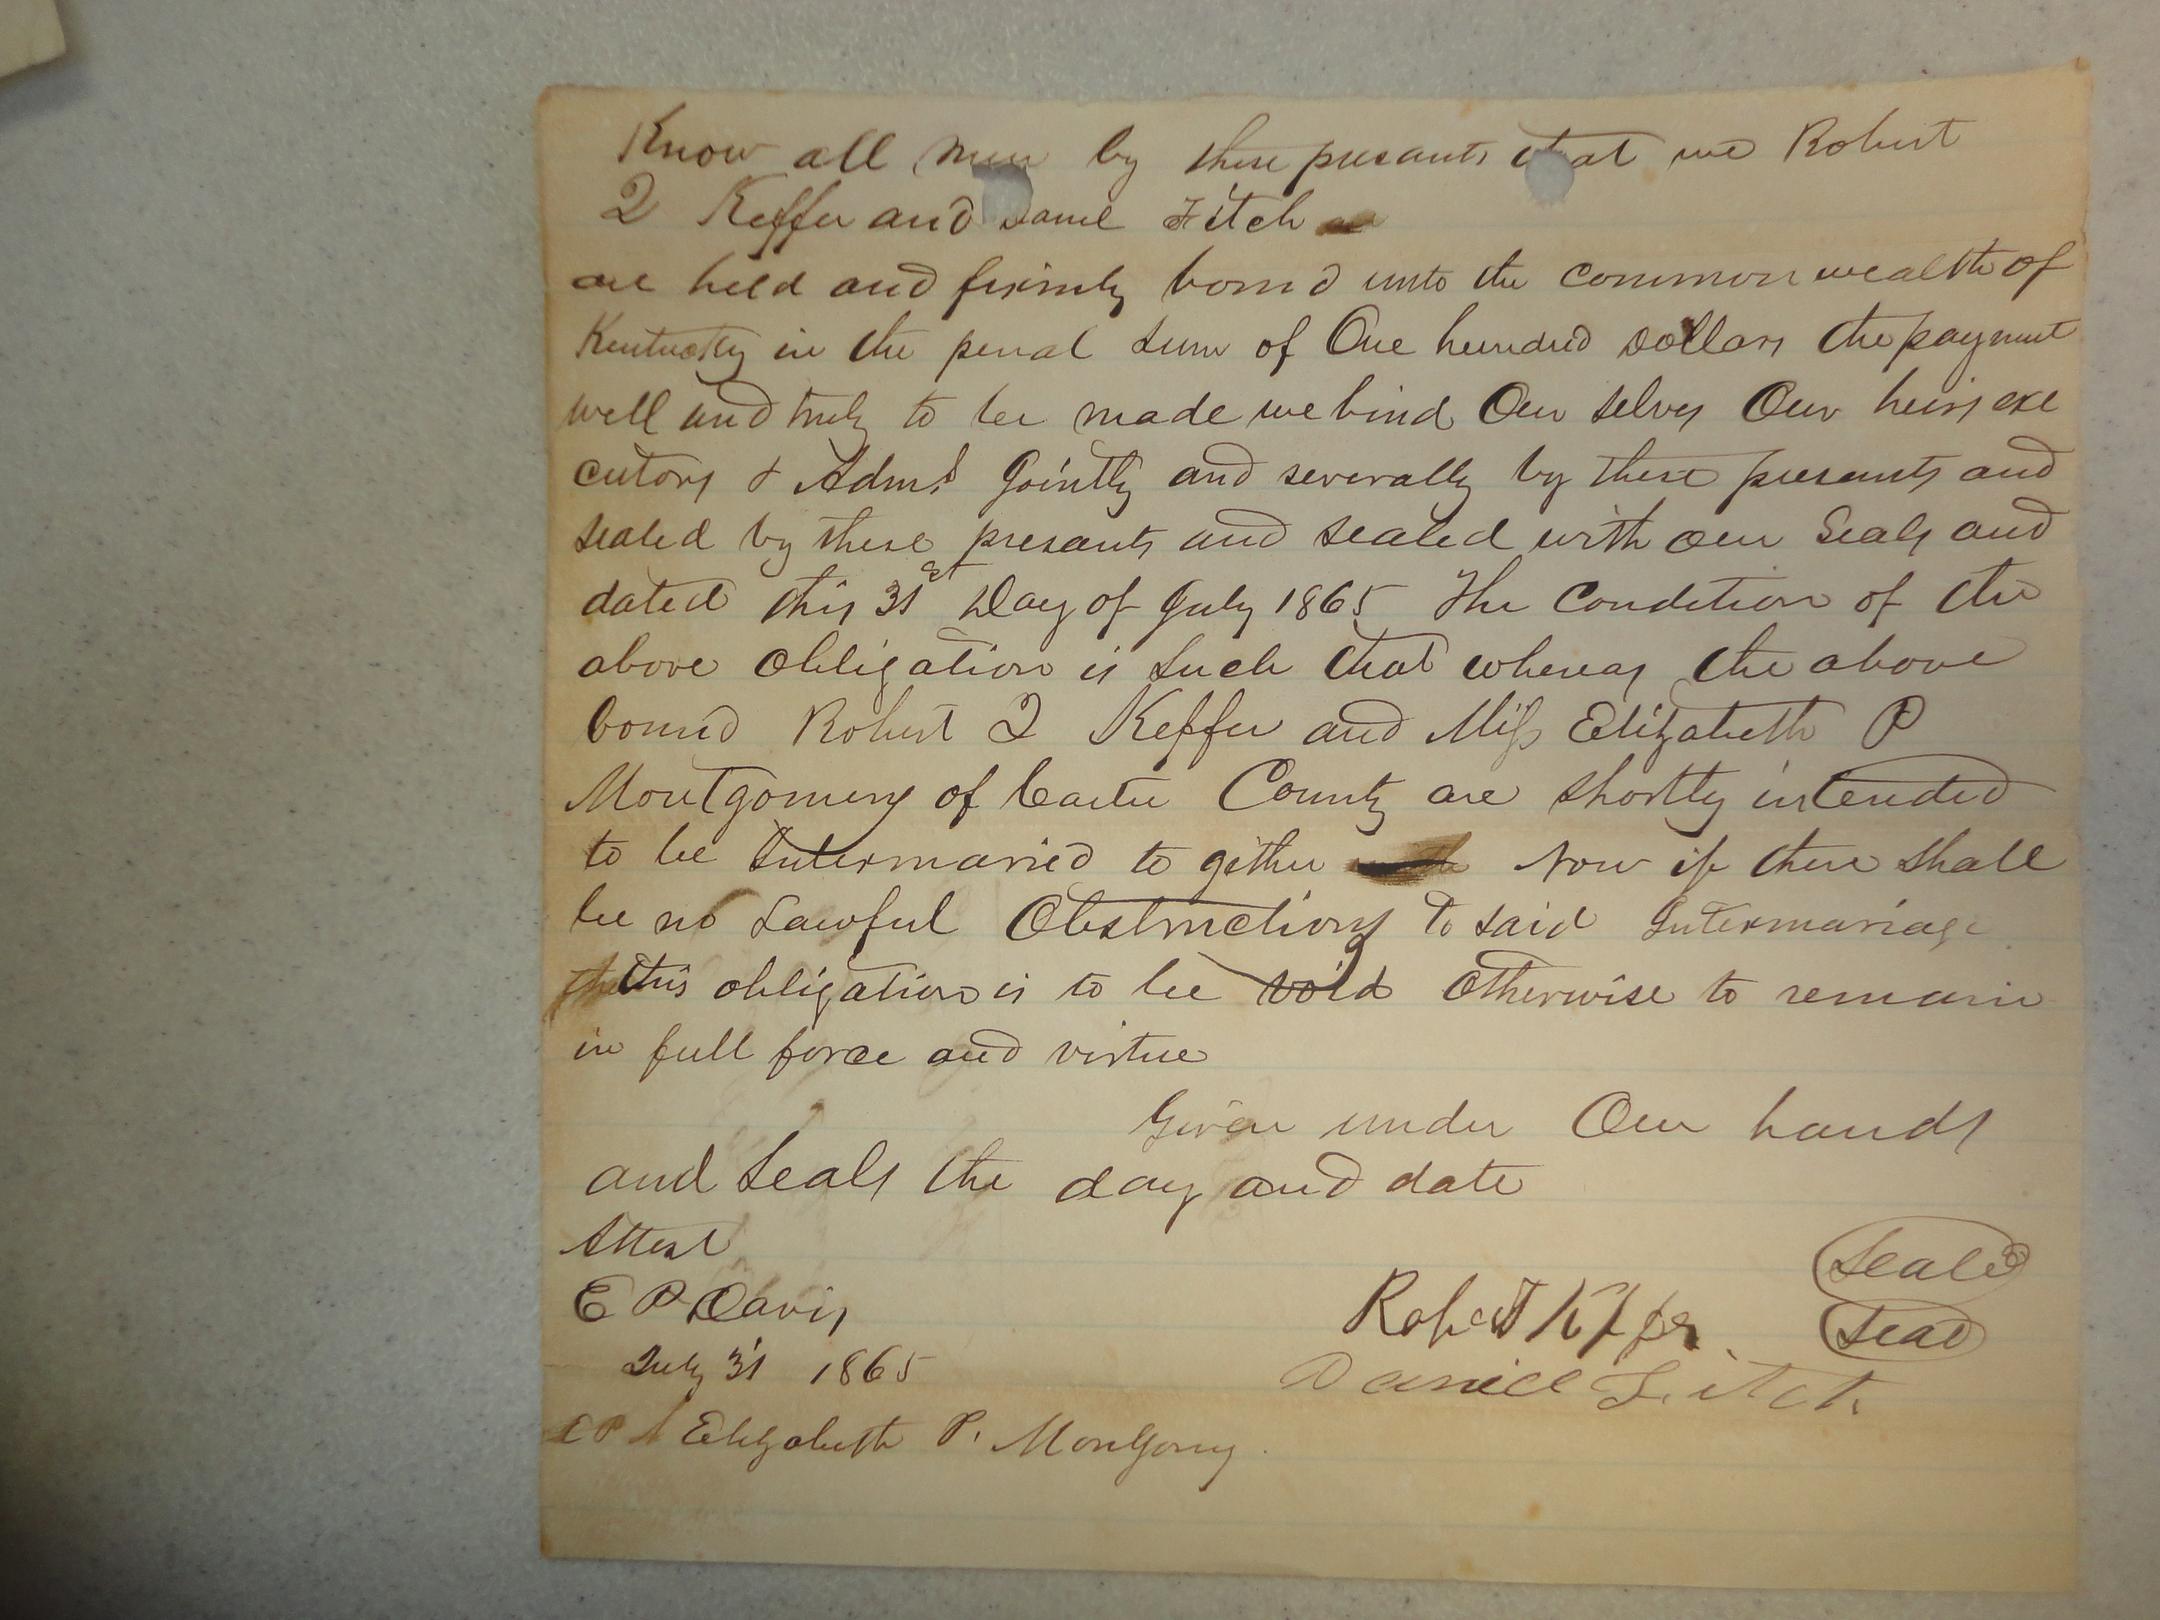 Know all men by these presants that we Robert
Q Keffer and Daniel Fitch
are held and firimly bound unto the common wealth of
Kentucky in the penal sum of One hundred Dollars the payment
well and truly to be made we bind Our selves Our heirs exe
cutors & Adms Jointly and severally by these presants and
sealed by these presants and sealed with our Seals and
dated this 31st Day of July 1865 The Condition of the
above obligation is such that whereas the above
bound Robert Q Keffer and Miss Elizabeth P
Montgomery of Carter County are shortly intended
to be Intermaried to gether Now if there shall
be no Lawful Obstructions to said Intermariage
this obligation is to be void Otherwise to remain
in full force and virtue
Given under Our hands
and seals the day and date
Attest
E P Davis
July 31 1865
Robert Keffer Seal
Daniel Fitch Seal
Elizabeth P. Montgomry